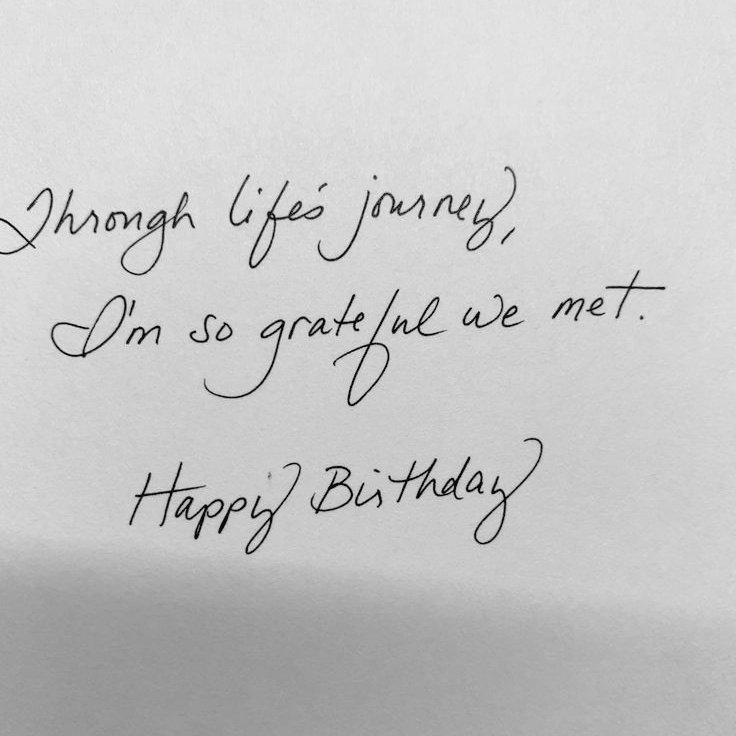 Through life's journey,
I'm so grateful we met.
Happy Birthday